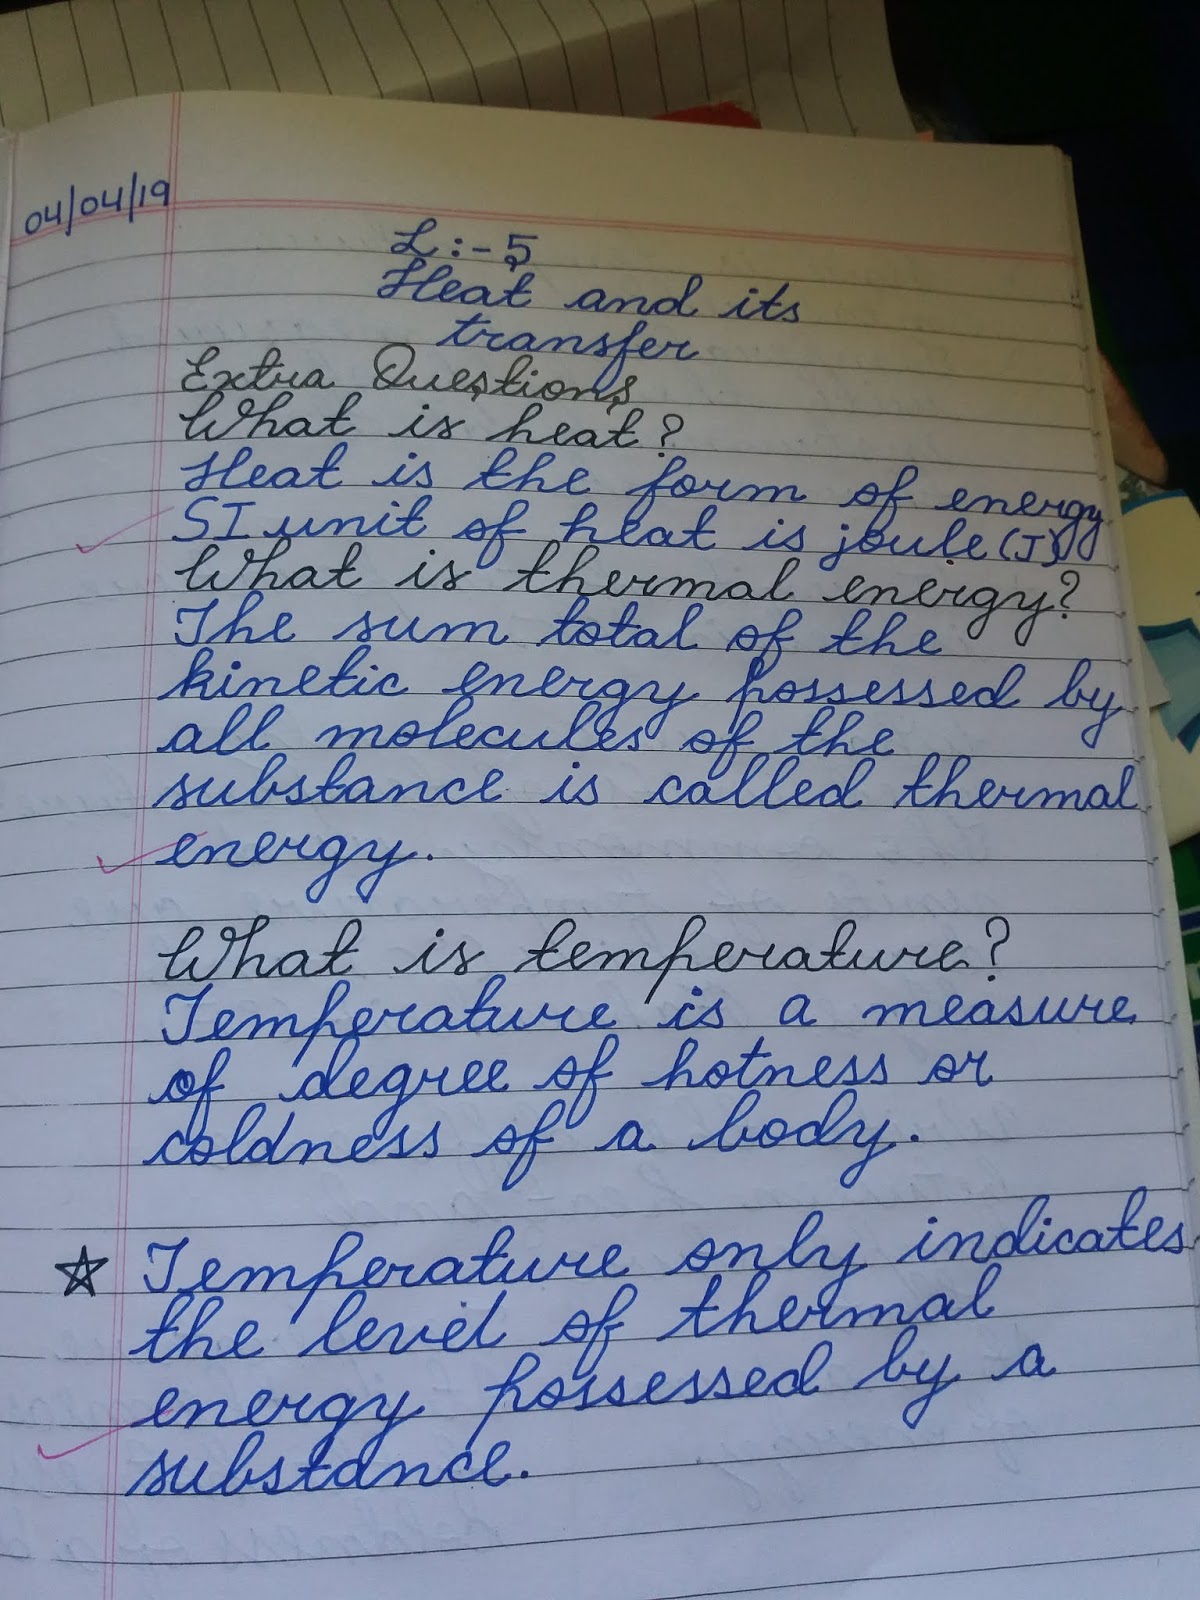 04/04/19
L:-5
Heat and its
transfer
Extra Questions
What is heat?
Heat is the form of energy
SI unit of heat is joule (J)
What is thermal energy?
The sum total of the
kinetic energy possessed by
all molecules of the
substance is called thermal
energy.
What is temperature?
Temperature is a measure
of degree of hotness or
coldness of a body.
☆ Temperature only indicates
the level of thermal
energy possessed by a
substance.